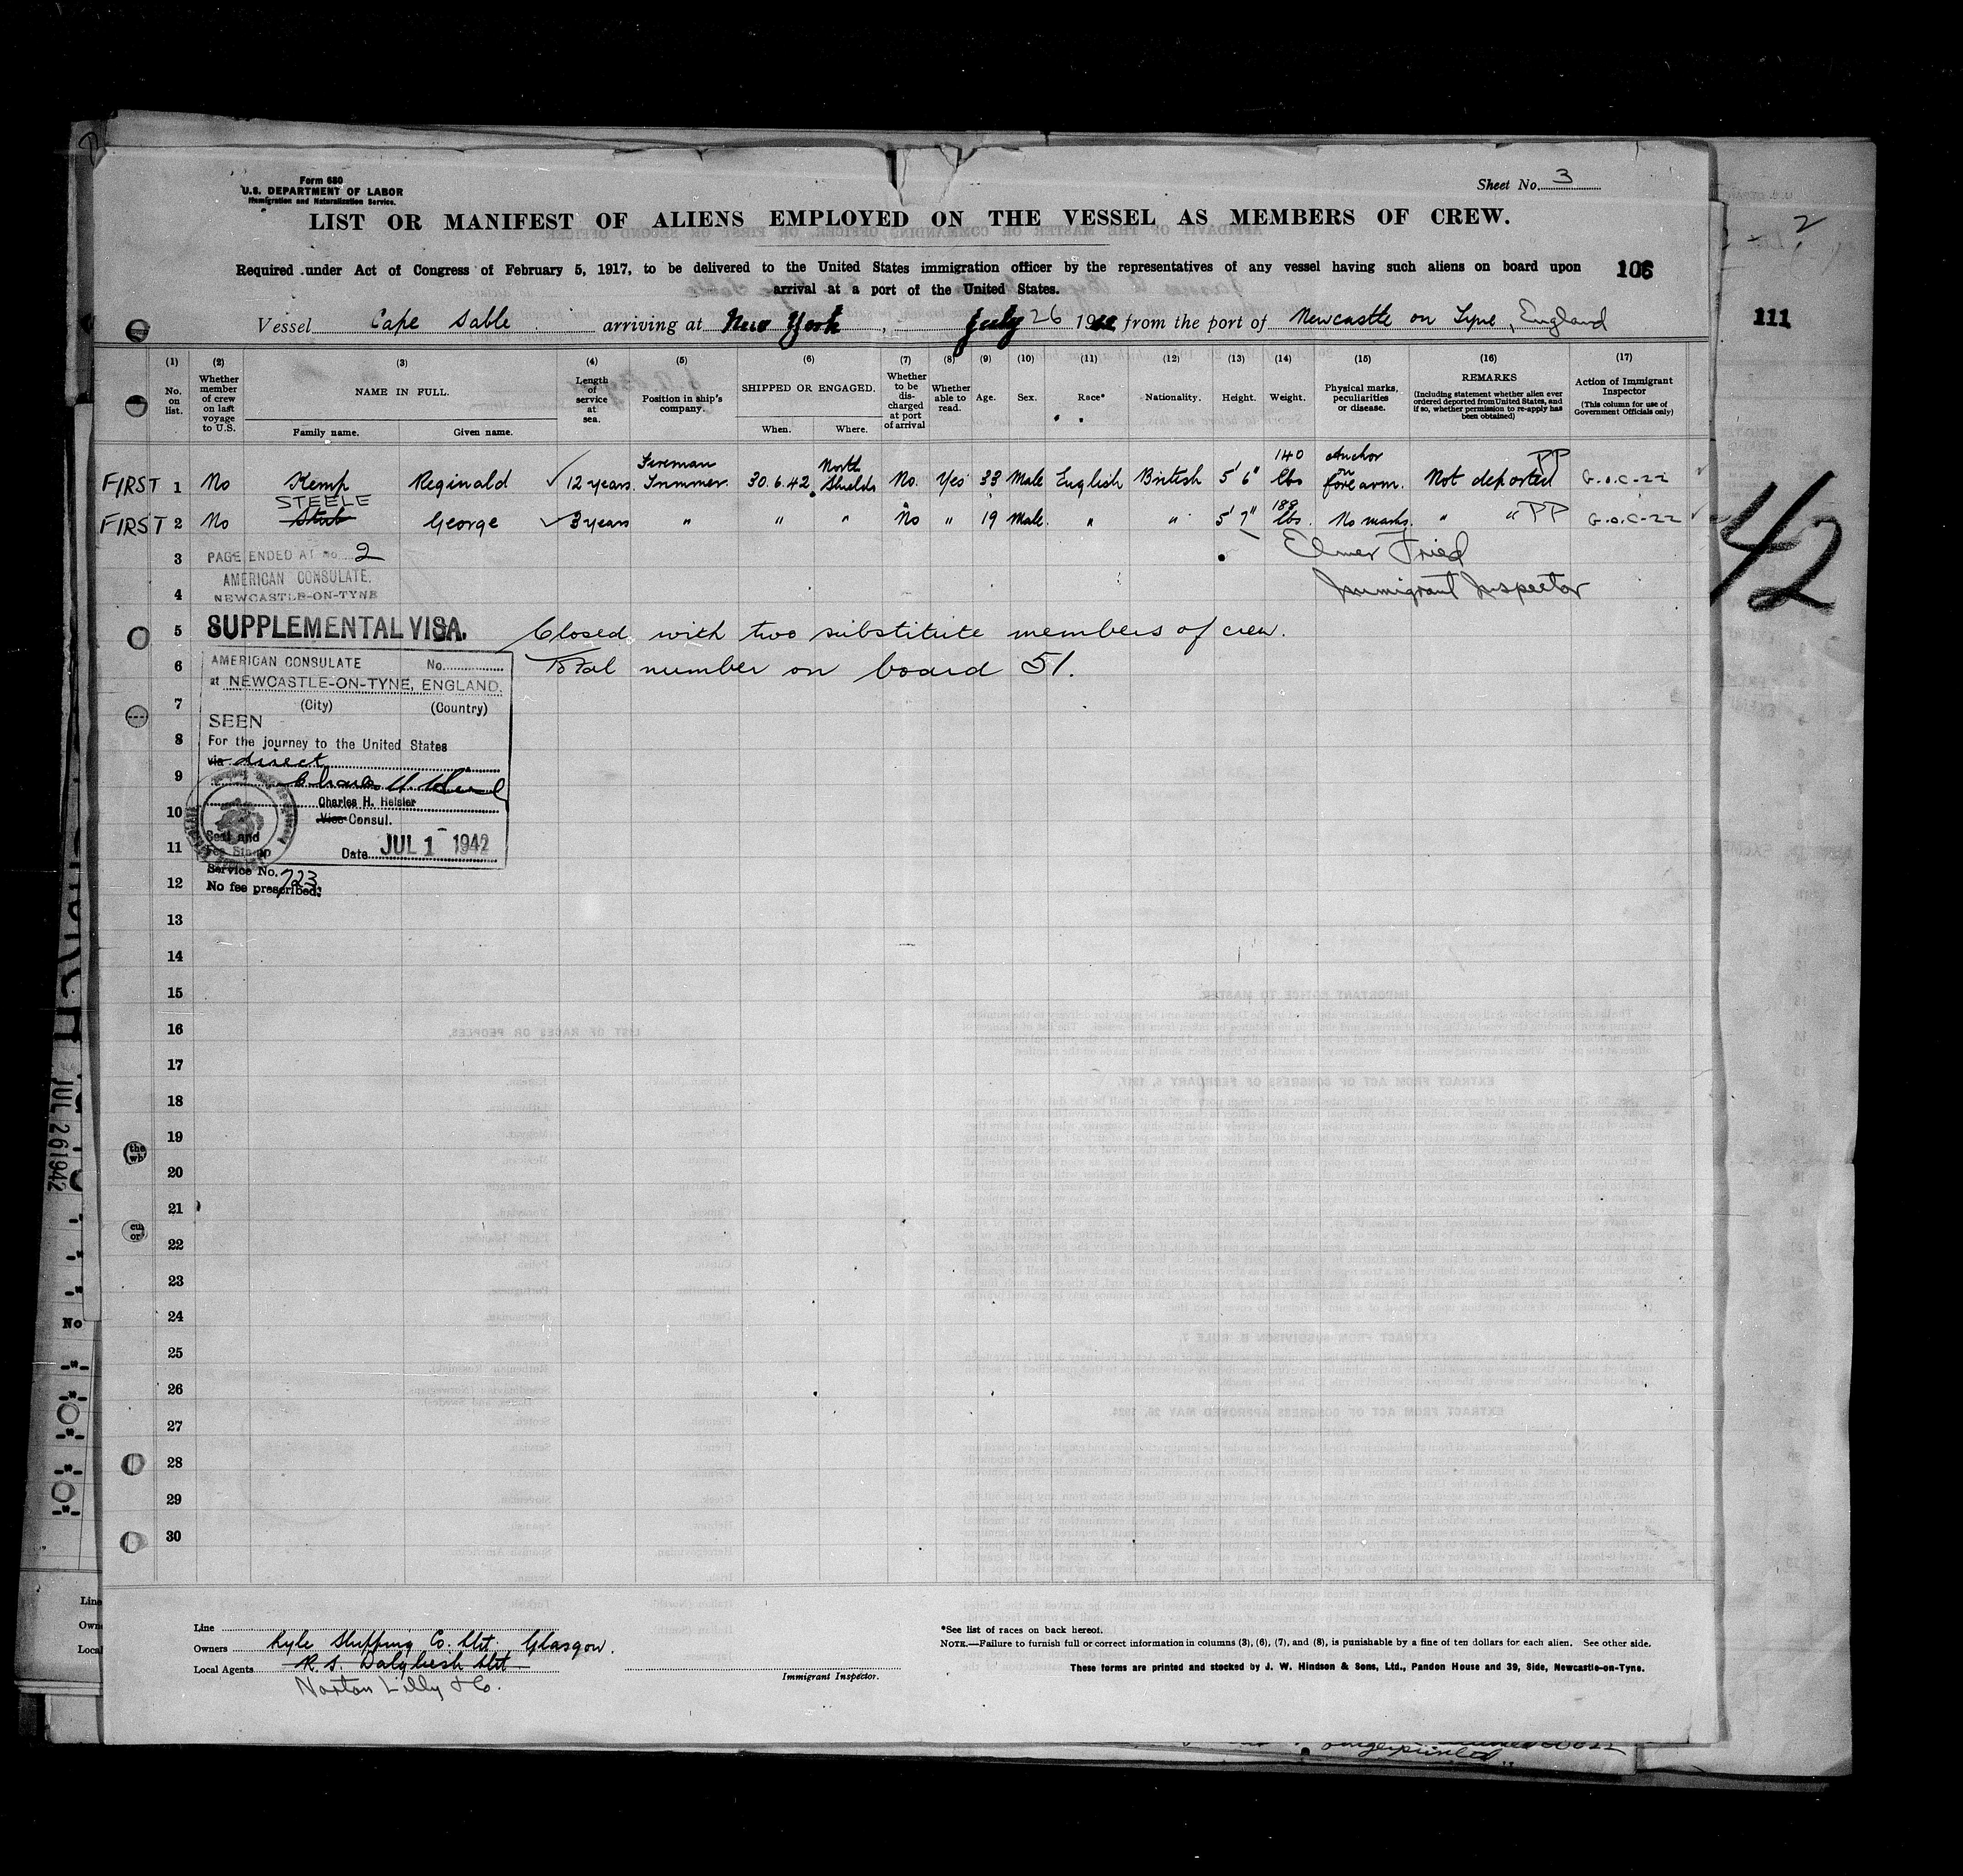 Form 680
U.S. DEPARTMENT OF LABOR
Immigration and Naturalization Service.
Sheet No. 3
LIST OR MANIFEST OF ALIENS EMPLOYED ON THE VESSEL AS MEMBERS OF CREW.
Required under Act of Congress of February 5, 1917, to be delivered to the United States immigration officer by the representatives of any vessel having such aliens on board upon
arrival at a port of the United States.
106
111
Vessel Cape Sable arriving at New York, July 26 1942 from the port of Newcastle on Tyne, England
(1) (2) (3) (4) (5) (6) (7) (8) (9) (10) (11) (12) (13) (14) (15) (16) (17)
No. on list.
Whether member of crew on last voyage to U.S.
NAME IN FULL.
Family name. Given name.
Length of service at sea.
Position in ship's company.
SHIPPED OR ENGAGED.
When. Where.
Whether to be discharged at port of arrival
Whether able to read.
Age.
Sex.
Race*
Nationality.
Height.
Weight.
Physical marks, peculiarities or disease.
REMARKS
(Including statement whether alien ever ordered deported from United States, and if so, whether permission to re-apply has been obtained)
Action of Immigrant Inspector
(This column for use of Government Officials only)
FIRST 1 No Kemp Reginald 12 years. Fireman Trimmer 30.6.42. North Shields No. Yes 33 Male English British 5' 6" 140 lbs Anchor on fore arm. Not deported PP G.O.C-22
STEELE
FIRST 2 No George 3 years " " " No " 19 Male. " " 5' 7" 189 lbs. No marks. " " PP G.O.C-22
3 PAGE ENDED AT No 2
Elmer Fried
AMERICAN CONSULATE.
4 NEWCASTLE-ON-TYNE
Immigrant Inspector
42
5 SUPPLEMENTAL VISA.
Closed with two substitute members of crew.
6 Total number on board 51.
AMERICAN CONSULATE No.
at NEWCASTLE-ON-TYNE, ENGLAND.
7 (City) (Country)
SEEN
8 For the journey to the United States
via direct
9
Charles H. Heisler
10 Vice Consul.
Seal and
Fee Stamp
11 Date JUL 1 1942
Service No. 723
12 No fee prescribed.
13
14
15
16
17
18
19
20
21
22
23
24
25
26
27
28
29
30
JUL 26 1942
No
Line
Owners Lyle Shipping Co. Ltd. Glasgow.
Local Agents R. S. Dalgliesh Ltd
Norton Lilly & Co.
Immigrant Inspector.
*See list of races on back hereof.
NOTE.—Failure to furnish full or correct information in columns (3), (6), (7), and (8), is punishable by a fine of ten dollars for each alien. See other side.
These forms are printed and stocked by J. W. Hindson & Sons, Ltd., Pandon House and 39, Side, Newcastle-on-Tyne.
fingerprinted